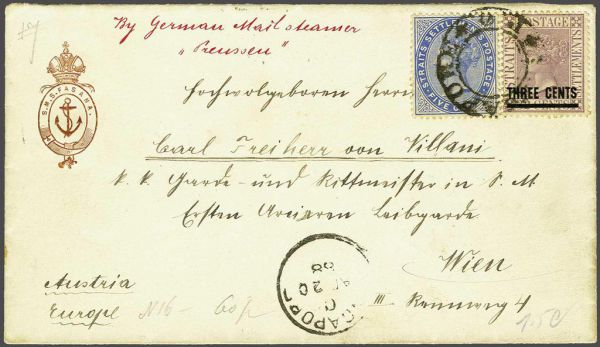 By German Mailsteamer
"Preussen"
S.M.S. FASANA.
STRAITS SETTLEMENTS POSTAGE
FIVE
STRAITS SETTLEMENTS
POSTAGE
THREE CENTS
Hochwolgeboren Herrn
Carl Freiherr von Villani
k. k. Garde- und Rittmeister in S. M
Ersten Arcieren Leibgarde
Wien
III Rennweg 4
Austria
Europe
GAPOR
C
20
88
N16- 60/